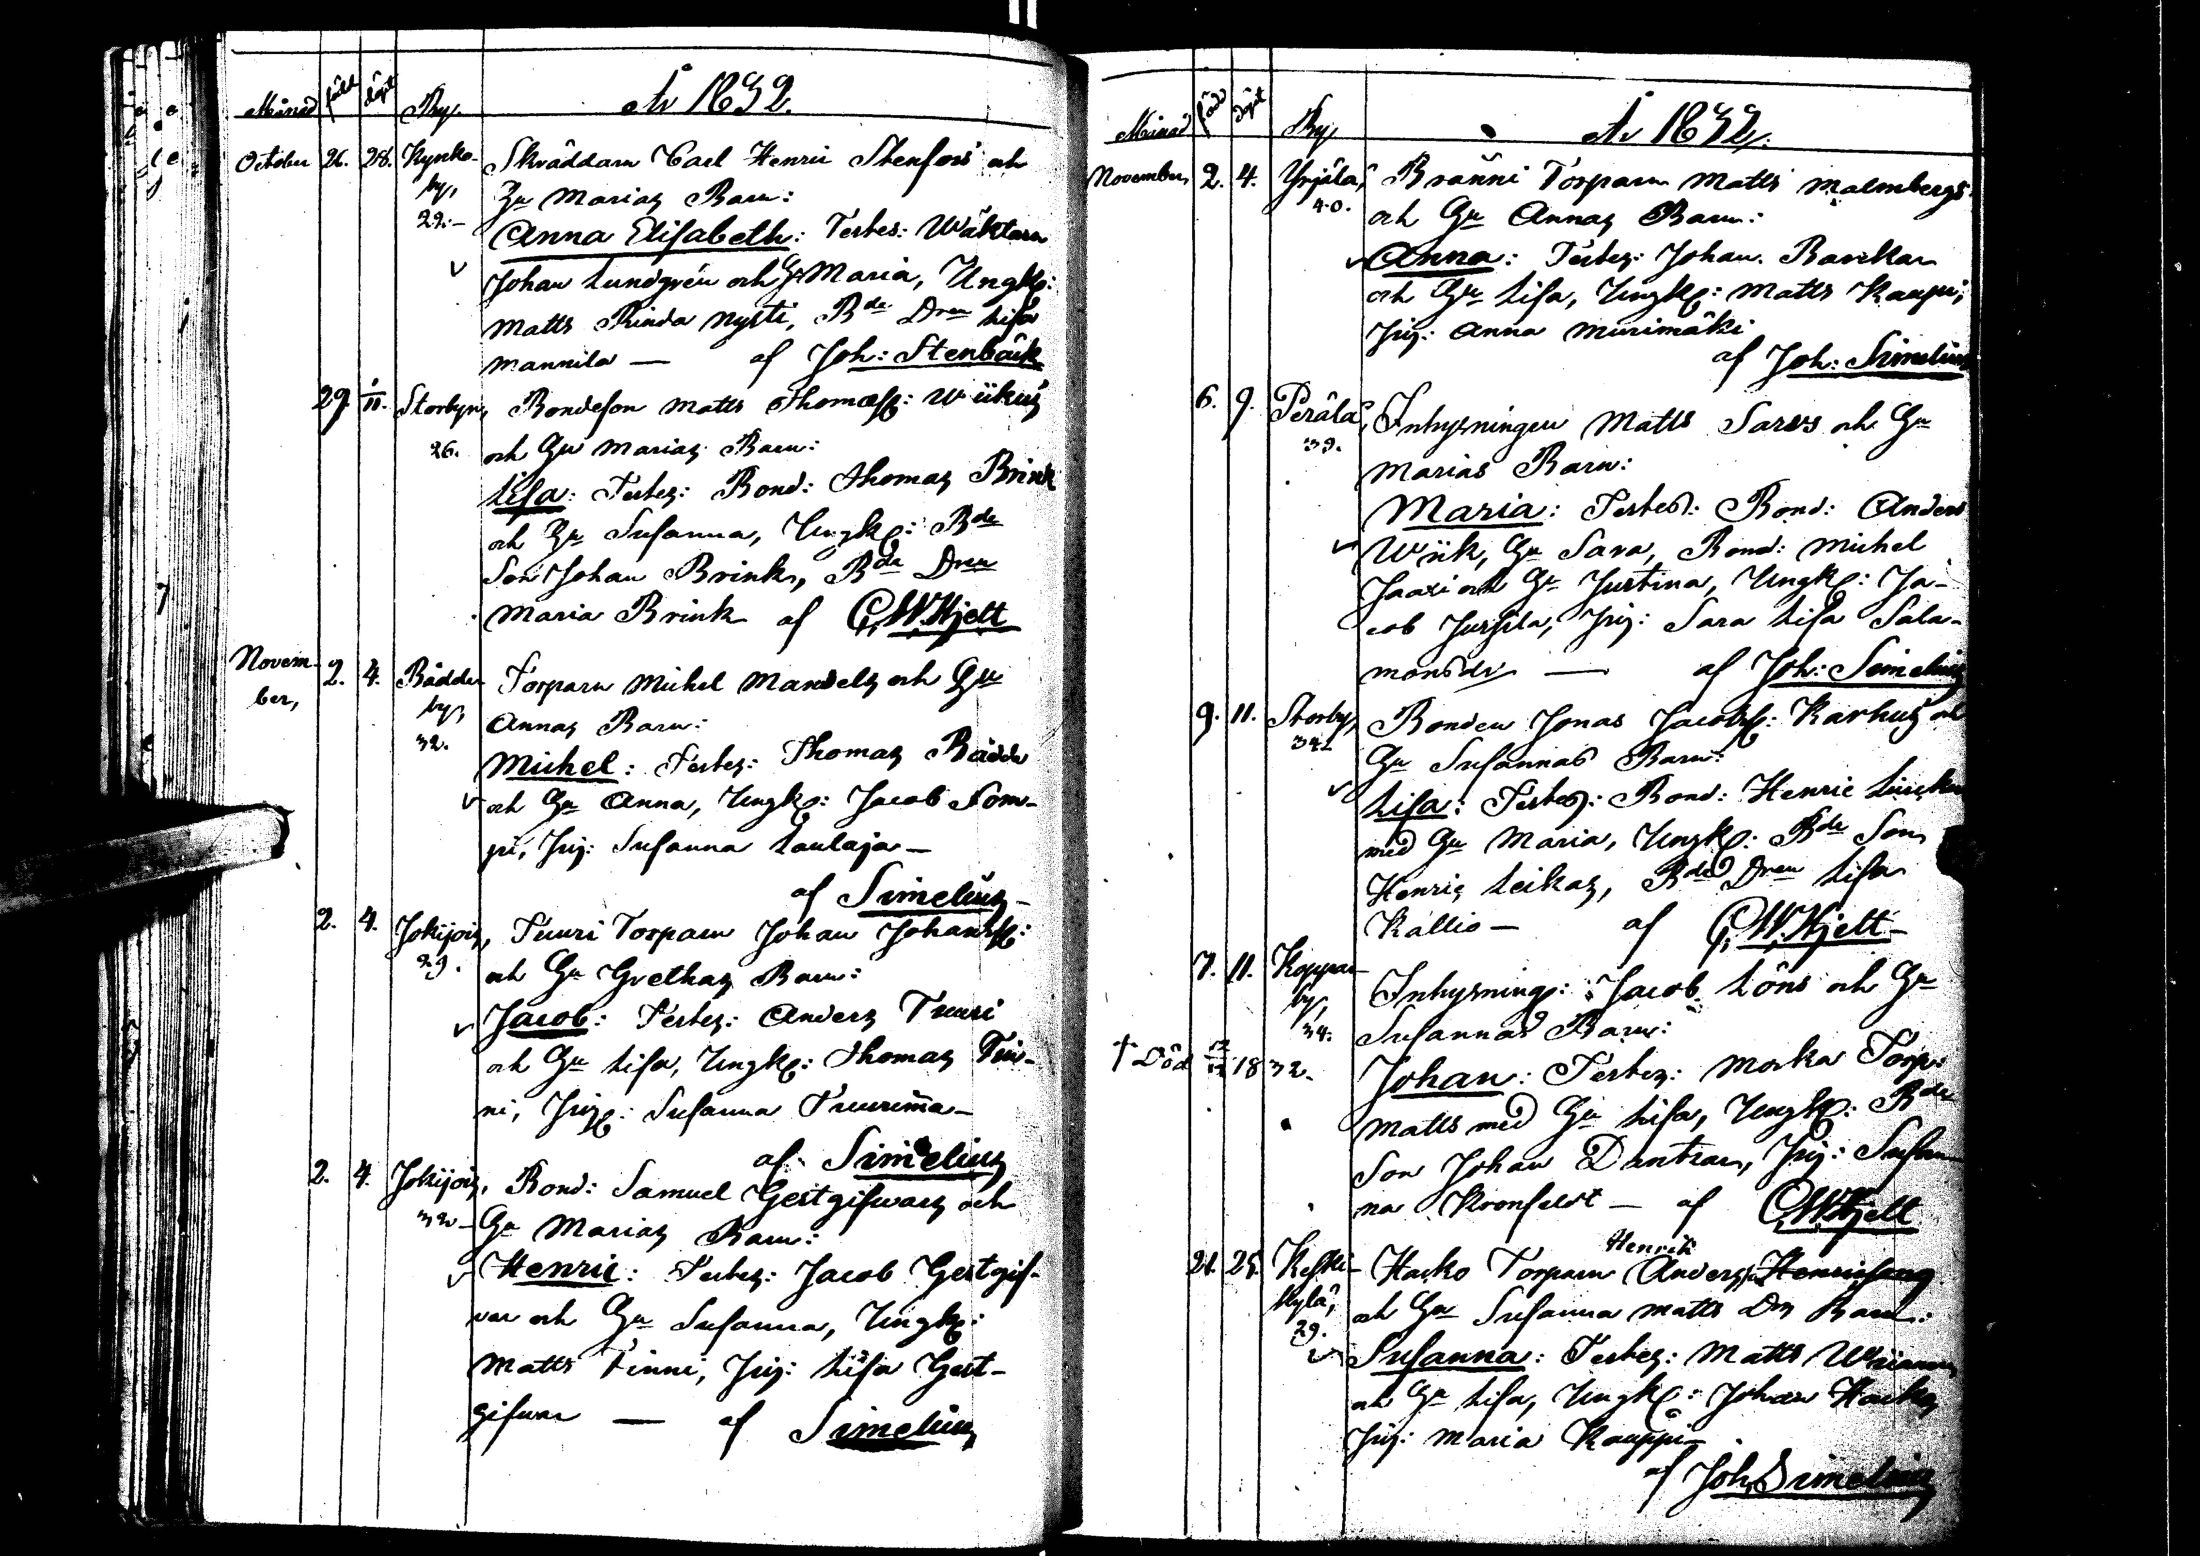 År 1832.
Månad född döpt By.
October 26. 28. Kyrko- Skräddarn Carl Henric Stenfors och
by, Hu Marias Barn:
29.– Anna Elisabeth: Testes: Wäktarn
Johan Lundgrén och Hu Maria, Ungk:
Matts Rinda Nysti, Bde Dren Lisa
Mannila — af Joh: Stenbäck
29. 1/11. Storbyn, Bondeson Matts Thomæss: Wiikus
26. och Hu Marias Barn:
Lisa: Testes: Bond: Thomas Brink
och Hu Susanna, Ungk: Bde
Son Johan Brink, Bde Dren
Maria Brink af C. W. Hjelt
Novem- 2. 4. Rådde Torparn Michel Mandels och Hu
ber, by, Annas Barn:
32.
Michel: Testes: Thomas Rådde
och Hu Anna, Ungk: Jacob Som-
pi, Pig: Susanna Laulaja —
af Simelius
2. 4. Jokijois, Tuuri Torparn Johan Johanss:
29. och Hu Grethas Barn:
Jacob: Testes: Anders Tuuri
och Hu Lisa, Ungk: Thomas Tin-
ni, Pig: Susanna Tuurima —
af Simelius
2. 4. Jokijois, Bond: Samuel Gestgifwars och
32 – Hu Marias Barn:
Henric: Testes: Jacob Gestgif-
var och Hu Susanna, Ungk:
Matts Finni, Pig: Lisa Gest-
gifwar — af Simelius
År 1832.
Månad född döpt By,
November, 2. 4. Yrjälä, Bränni Torparn Matts Malmbergs
40. och Hu Annas Barn:
Anna: Testes: Johan
och Hu Lisa, Ungk: Matts Kaupi,
Pig: Anna Murimäki
af Joh: Simelius
6. 9. Perälä, Inhysningen Matts Sarvs och Hu
39. Marias Barn:
Maria: Testes: Bond: Anders
Wiik, Hu Sara, Bond: Michel
Jaaxi och Hu Justina, Ungk: Ja-
cob Jussila, Pig: Sara Lisa Sala-
monsdr — af Joh: Simelius
9. 11. Storby, Bonden Jonas Jacobss: Karhus och
34. Hu Susannas Barn:
Lisa: Testes: Bond: Henric
med Hu Maria, Ungk: Bde Son
Henric Leikas, Bde Dren Lisa
Kallio — af C. W. Hjelt
7. 11. Koppar- Inhysning: Jacob Löns och Hu
by, Susannas Barn:
34.
† Död 12/12 1832. Johan: Testes: Morka Torp:
Matts med Hu Lisa, Ungk: Bde
Son Johan Pig: Susan-
na Kronfeldt — af C. W. Hjelt
Henrik
21. 25. Keski- Hacko Torparn Anderss: Henricsons
kylä, och Hu Susanna Matts Drs Barn:
29.
Susanna: Testes: Matts
och Hu Lisa, Ungk: Johan Hacko
Pig: Maria Kauppi —
af Joh. Simelius